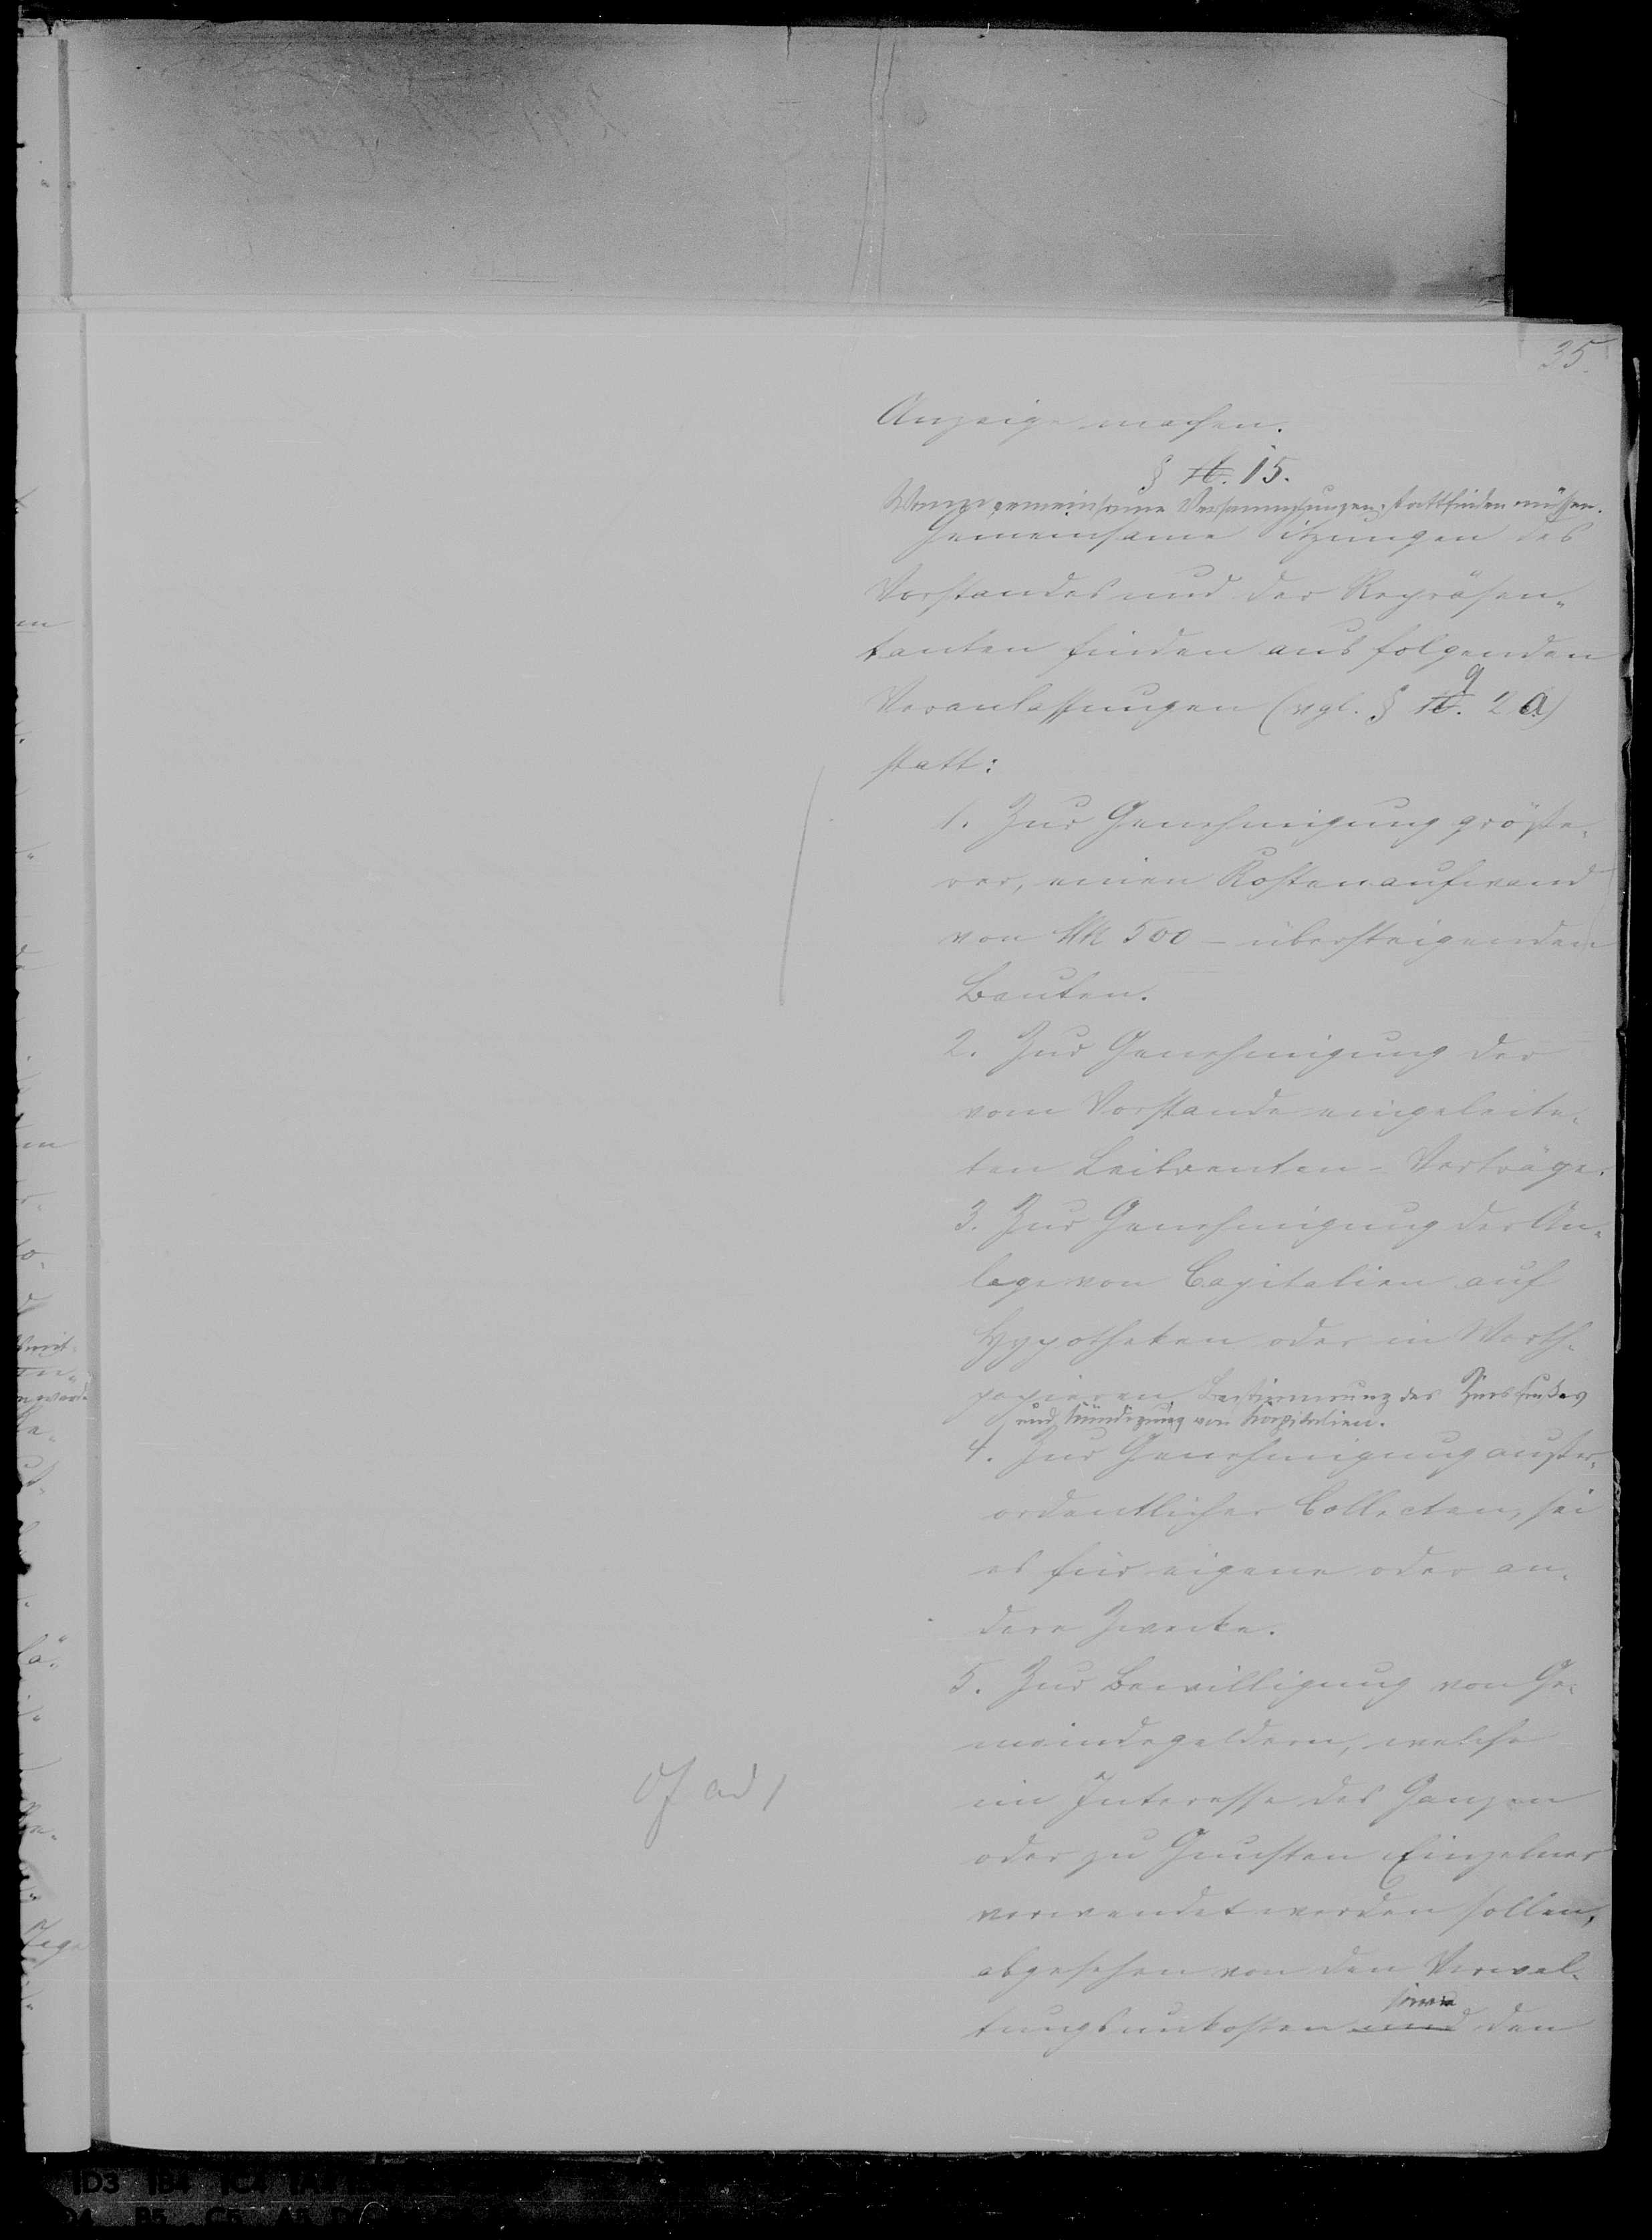 35.
Anzeige machen.
§ 16. 15.
Wenn gemeinsame Versammlungen stattfinden müssen.
Gemeinsame Sitzungen des
Vorstandes und der Repräsen„
tanten finden aus folgenden
9
Veranlassungen (vgl. § 10. 2 a)
statt:
1. Zur Genehmigung größe„
rer, einen Kostenaufwand
von Mk 500 – übersteigenden
Bauten.
2. Zur Genehmigung der
vom Vorstande eingeleite„
ten Leibrenten-Verträge.
3. Zur Genehmigung der An„
lage von Capitalien auf
Hypotheken oder in Werth„
papieren Bestimmung des Zinsfußes
und Kündigung von Kapitalien.
4. Zur Genehmigung außer„
ordentlicher Collecten, sei
es für eigene oder an„
dere Zwecke.
5. Zur Bewilligung von Ge„
meindegeldern, welche
im Interesse des Ganzen
ad 1
oder zu Gunsten Einzelner
verwendet werden sollen,
abgesehen von den Verwal„
sowie
tungsunkosten und den